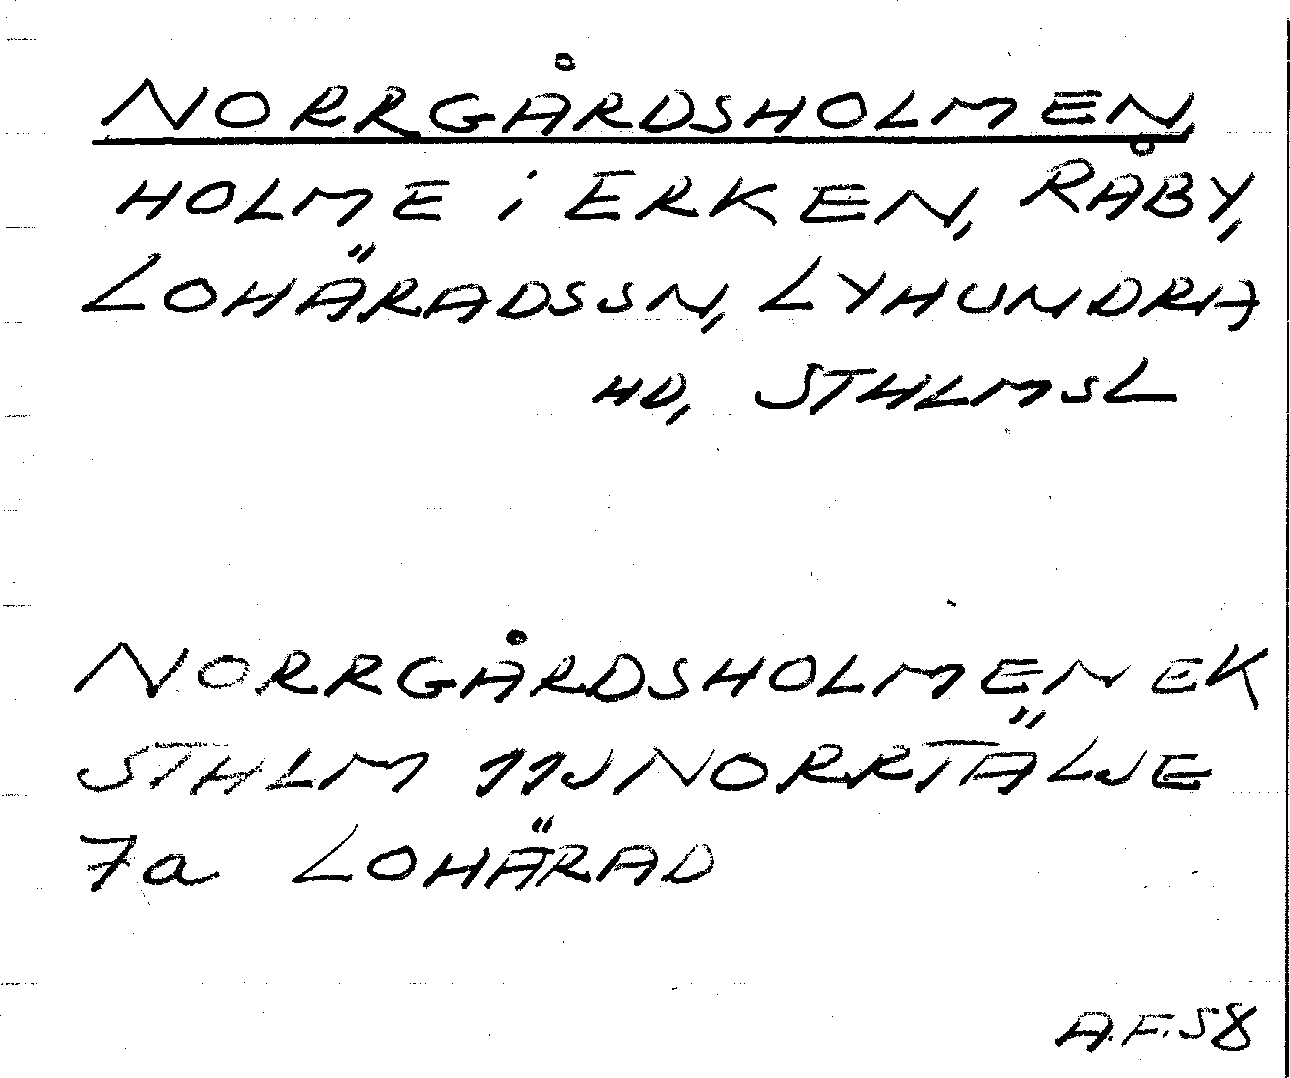 NORRGÅRDSHOLMEN
HOLME i ERKEN, RÅBY,
LOHÄRADSSN, LYHUNDRA
HD, STHLMSL
NORRGÅRDSHOLMEN EK
STHLM 11J NORRTÄLJE
7a LOHÄRAD
A.F. 58